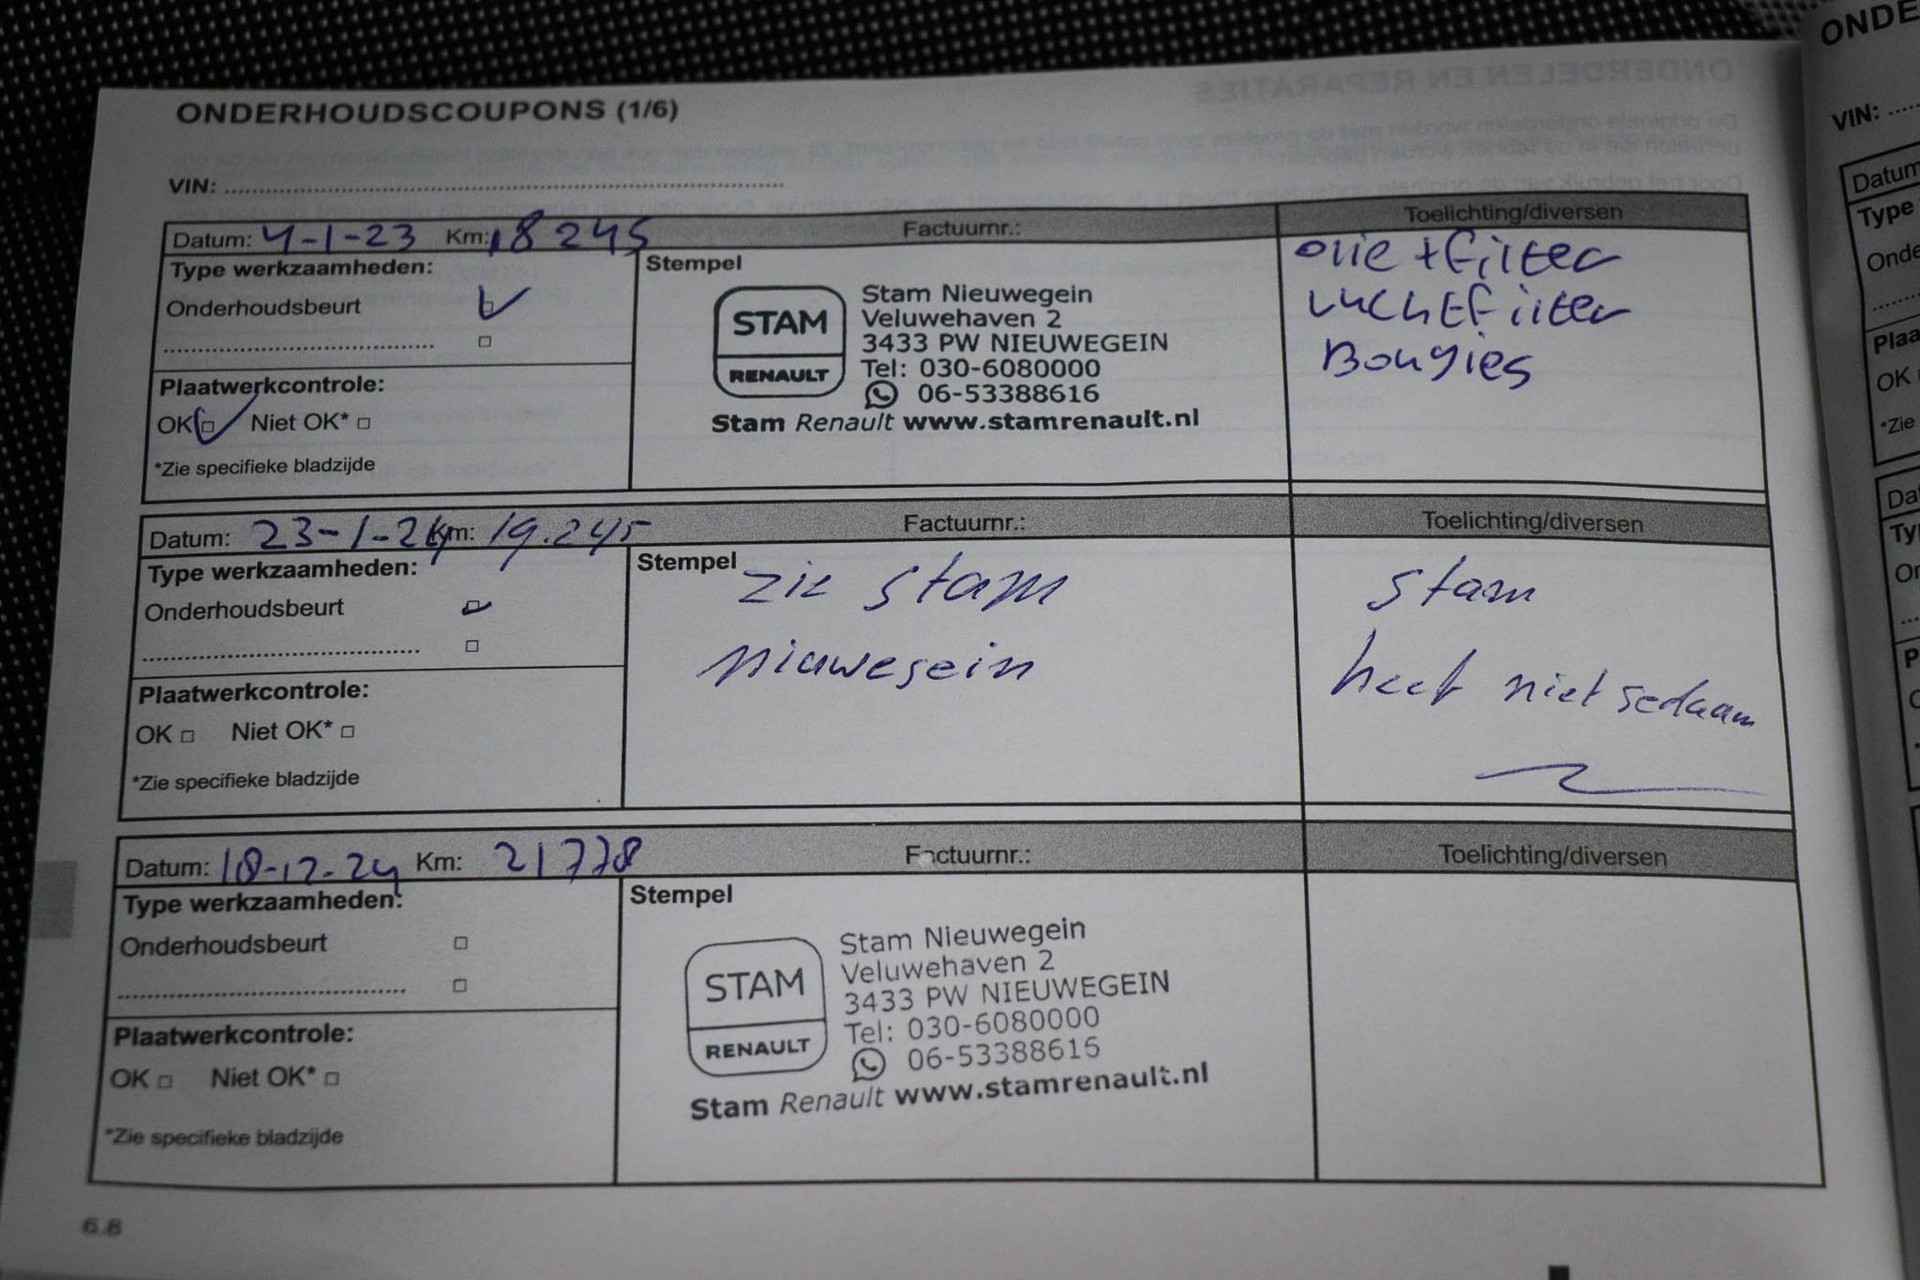 ONDERHOUDSCOUPONS (1/6)
VIN:
Datum: 4-1-23 Km: 18 245 Factuurnr.: Toelichting/diversen
Type werkzaamheden:
Onderhoudsbeurt
Plaatwerkcontrole:
OK Niet OK*
*Zie specifieke bladzijde
Stempel
STAM
RENAULT
Stam Nieuwegein
Veluwehaven 2
3433 PW NIEUWEGEIN
Tel: 030-6080000
06-53388616
Stam Renault www.stamrenault.nl
olie + filter
luchtfilter
Bougies
Datum: 23-1-24 Km: 19.245 Factuurnr.: Toelichting/diversen
Type werkzaamheden:
Onderhoudsbeurt
Plaatwerkcontrole:
OK Niet OK*
*Zie specifieke bladzijde
Stempel
zie stam
niuwegein
stam
heef niet gedaan
Datum: 18-12-24 Km: 21778 Factuurnr.: Toelichting/diversen
Type werkzaamheden:
Onderhoudsbeurt
Plaatwerkcontrole:
OK Niet OK*
*Zie specifieke bladzijde
Stempel
STAM
RENAULT
Stam Nieuwegein
Veluwehaven 2
3433 PW NIEUWEGEIN
Tel: 030-6080000
06-53388616
Stam Renault www.stamrenault.nl
6.8
VIN: